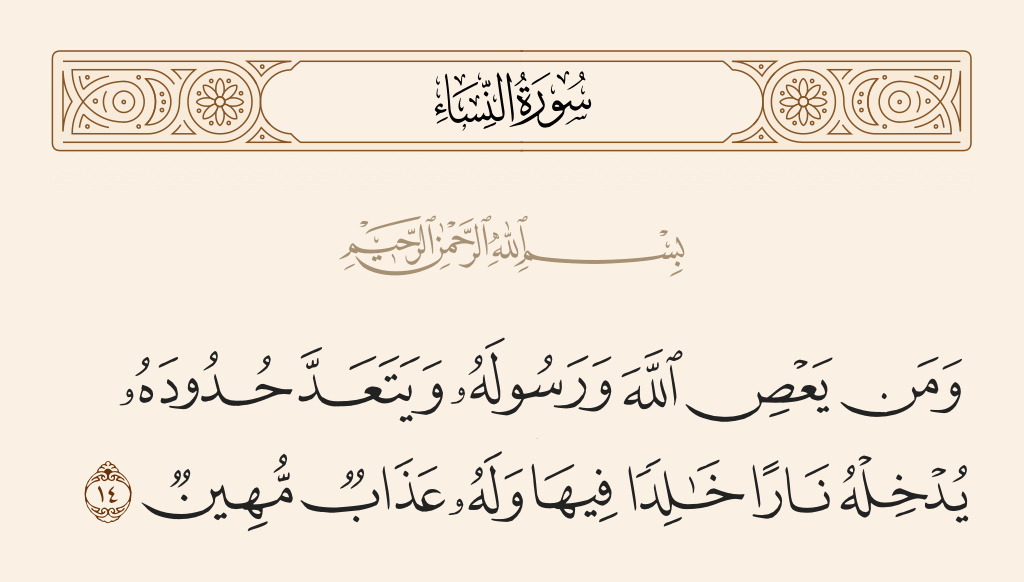 سُورَةُ النِّسَاءِ
بِسْمِ ٱللَّهِ ٱلرَّحْمَٰنِ ٱلرَّحِيمِ
وَمَن يَعْصِ ٱللَّهَ وَرَسُولَهُۥ وَيَتَعَدَّ حُدُودَهُۥ
يُدْخِلْهُ نَارًا خَٰلِدًا فِيهَا وَلَهُۥ عَذَابٌ مُّهِينٌ ١٤